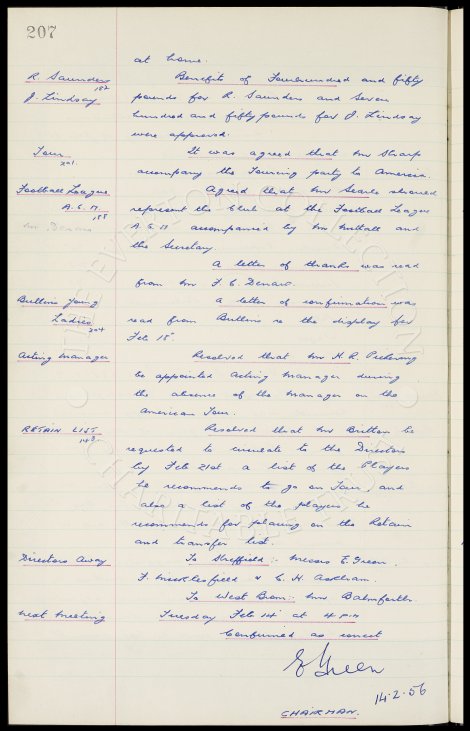 207
at home.
R Saunders 182
J. Lindsay
Benefits of Fourhundred and fifty
pounds for R. Saunders and seven
hundred and fifty pounds for J. Lindsay
were approved.
Tour 201
It was agreed that Mr Sharp
accompany the Touring party to America.
Football League
A.G.M 188
Agreed that Mr Searle should
represent the Club at the Football League
A.G.M accompanied by Mr and
the Secretary
Mr Denaro
A letter of thanks was read
from Mr F. C. Denaro.
Butlins Young
Ladies 204
A letter of confirmation was
read from Butlins re the display for
Feb 18
Acting Manager
Resolved that Mr H. R. Pickering
be appointed Acting Manager during
the absence of the Manager on the
American Tour.
RETAIN LIST 148
Resolved that Mr Britton be
requested to circulate to the Directors
by Feb 21st a list of the Players
he recommends to go on Tour, and
also a list of the players he
recommends for placing on the Retain
and transfer list.
Directors Away
To Sheffield:- Messrs E. Green.
F. Micklesfield & C. H. Askham.
To West Brom:- Mr Balmforth.
Next Meeting
Tuesday Feb 14 at 4 pm
Confirmed as correct
E Green
14-2-56
CHAIRMAN.
THE EVERTON COLLECTION
CHARITABLE TRUST